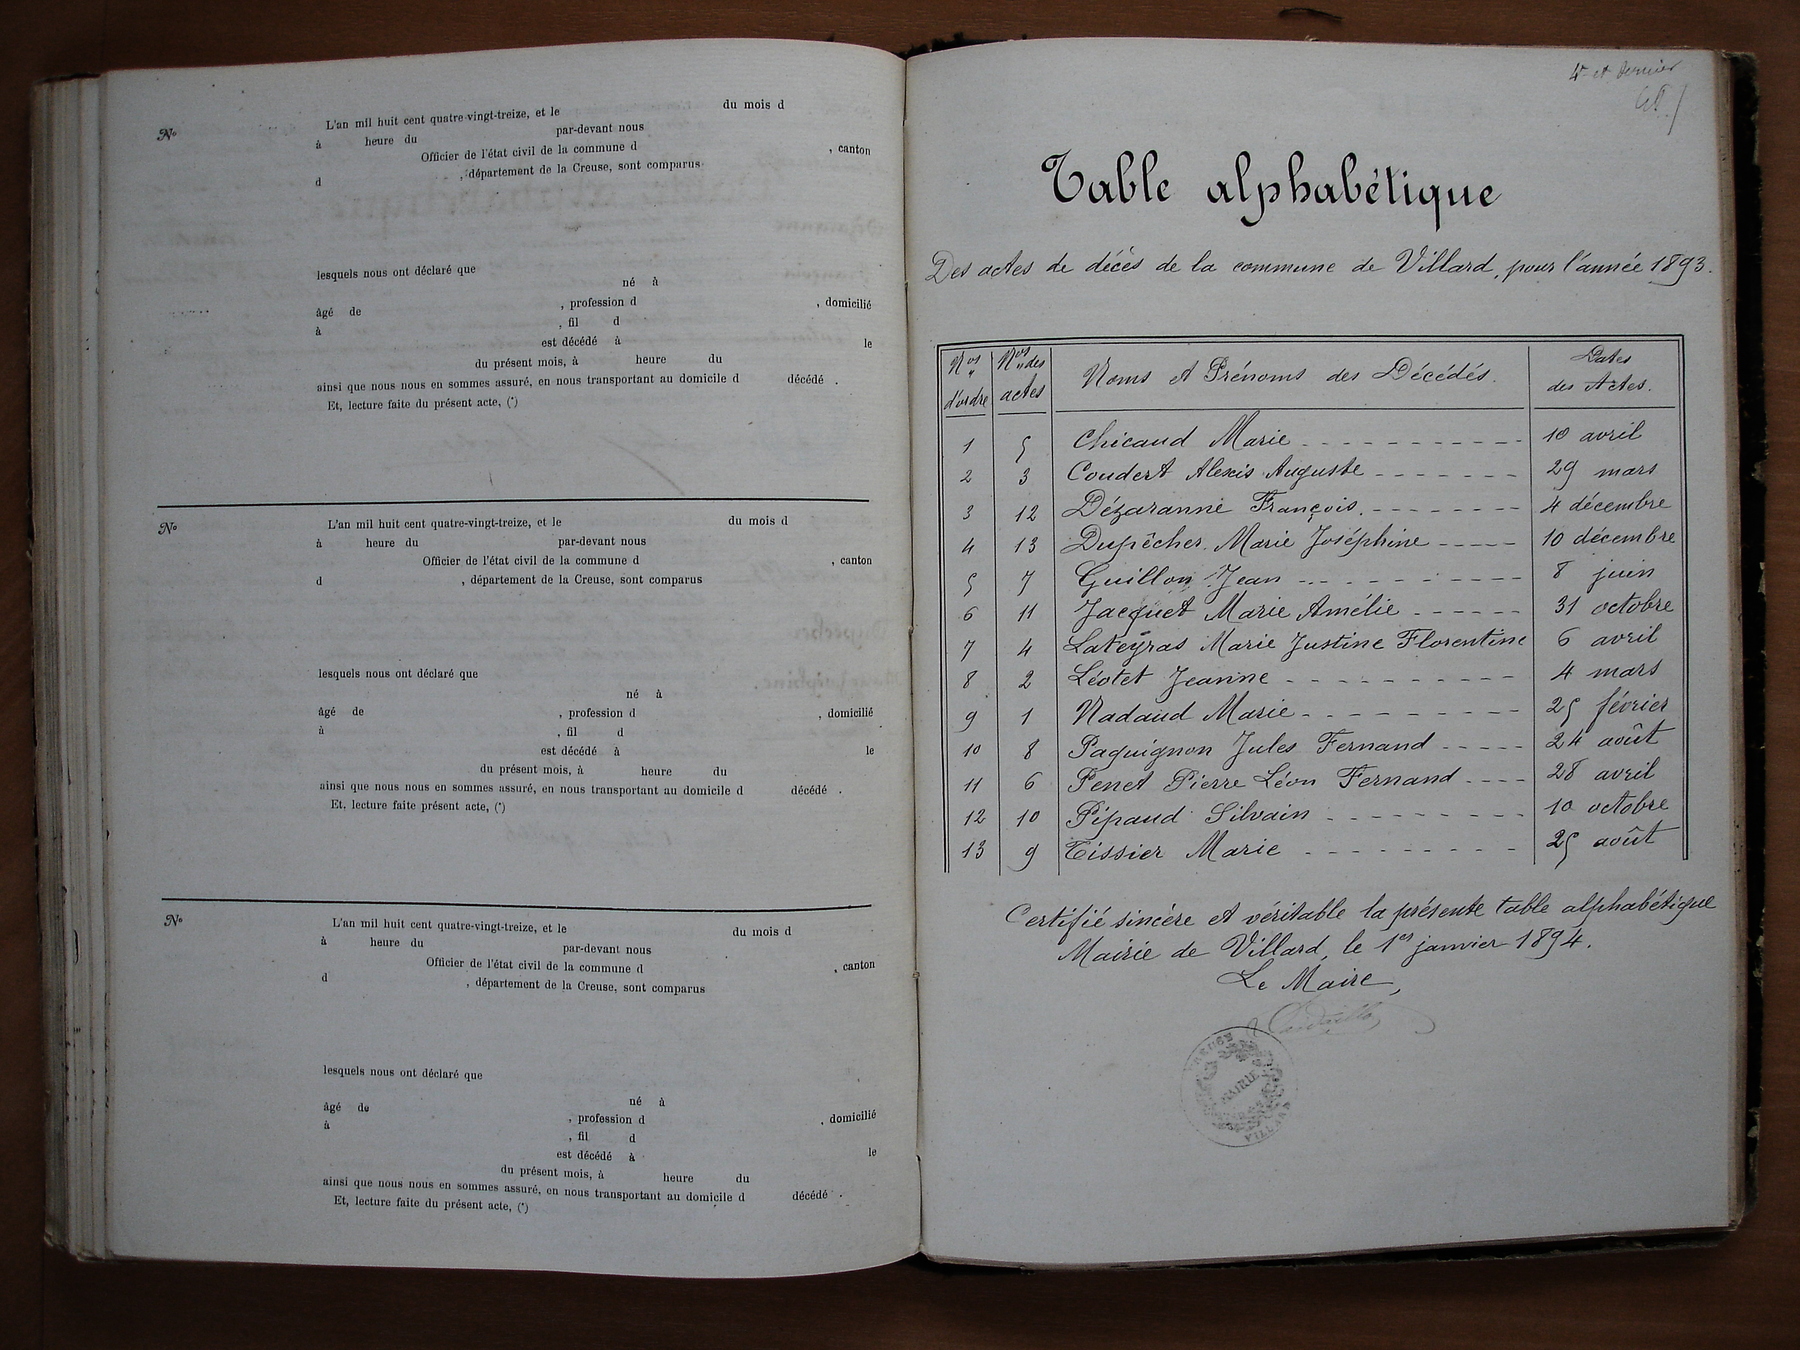 Nº
L'an mil huit cent quatre-vingt-treize, et le du mois d
à heure du par-devant nous
Officier de l'état civil de la commune d , canton
d , département de la Creuse, sont comparus
lesquels nous ont déclaré que
né à
âgé de , profession d , domicilié
à , fil d
est décédé à le
du présent mois, à heure du
ainsi que nous nous en sommes assuré, en nous transportant au domicile d décédé .
Et, lecture faite du présent acte, (*)
Nº
L'an mil huit cent quatre-vingt-treize, et le du mois d
à heure du par-devant nous
Officier de l'état civil de la commune d , canton
d , département de la Creuse, sont comparus
lesquels nous ont déclaré que
né à
âgé de , profession d , domicilié
à , fil d
est décédé à le
du présent mois, à heure du
ainsi que nous nous en sommes assuré, en nous transportant au domicile d décédé .
Et, lecture faite présent acte, (*)
Nº
L'an mil huit cent quatre-vingt-treize, et le du mois d
à heure du par-devant nous
Officier de l'état civil de la commune d , canton
d , département de la Creuse, sont comparus
lesquels nous ont déclaré que
né à
âgé de , profession d , domicilié
à , fil d
est décédé à le
du présent mois, à heure du
ainsi que nous nous en sommes assuré, en nous transportant au domicile d décédé .
Et, lecture faite du présent acte, (*)
4e et dernier
Table alphabétique
Des actes de décès de la commune de Villard, pour l'année 1893.
Nos d'ordre Nos des actes Noms et Prénoms des Décédés. Dates des Actes.
1 5 Chicaud Marie 10 avril
2 3 Coudert Alexis Auguste 29 mars
3 12 Dézaranne François. 4 décembre
4 13 Dupêcher Marie Joséphine 10 décembre
5 7 Guillon Jean 8 juin
6 11 Jacquet Marie Amélie 31 octobre
7 4 Lateyras Marie Justine Florentine 6 avril
8 2 Léotet Jeanne 4 mars
9 1 Nadaud Marie 25 février
10 8 Paquignon Jules Fernand 24 août
11 6 Penet Pierre Léon Fernand 28 avril
12 10 Pipaud Silvain 10 octobre
13 9 Tissier Marie 25 août
Certifié sincère et véritable la présente table alphabétique
Mairie de Villard, le 1er janvier 1894.
Le Maire,
CREUSE
MAIRIE
VILLARD